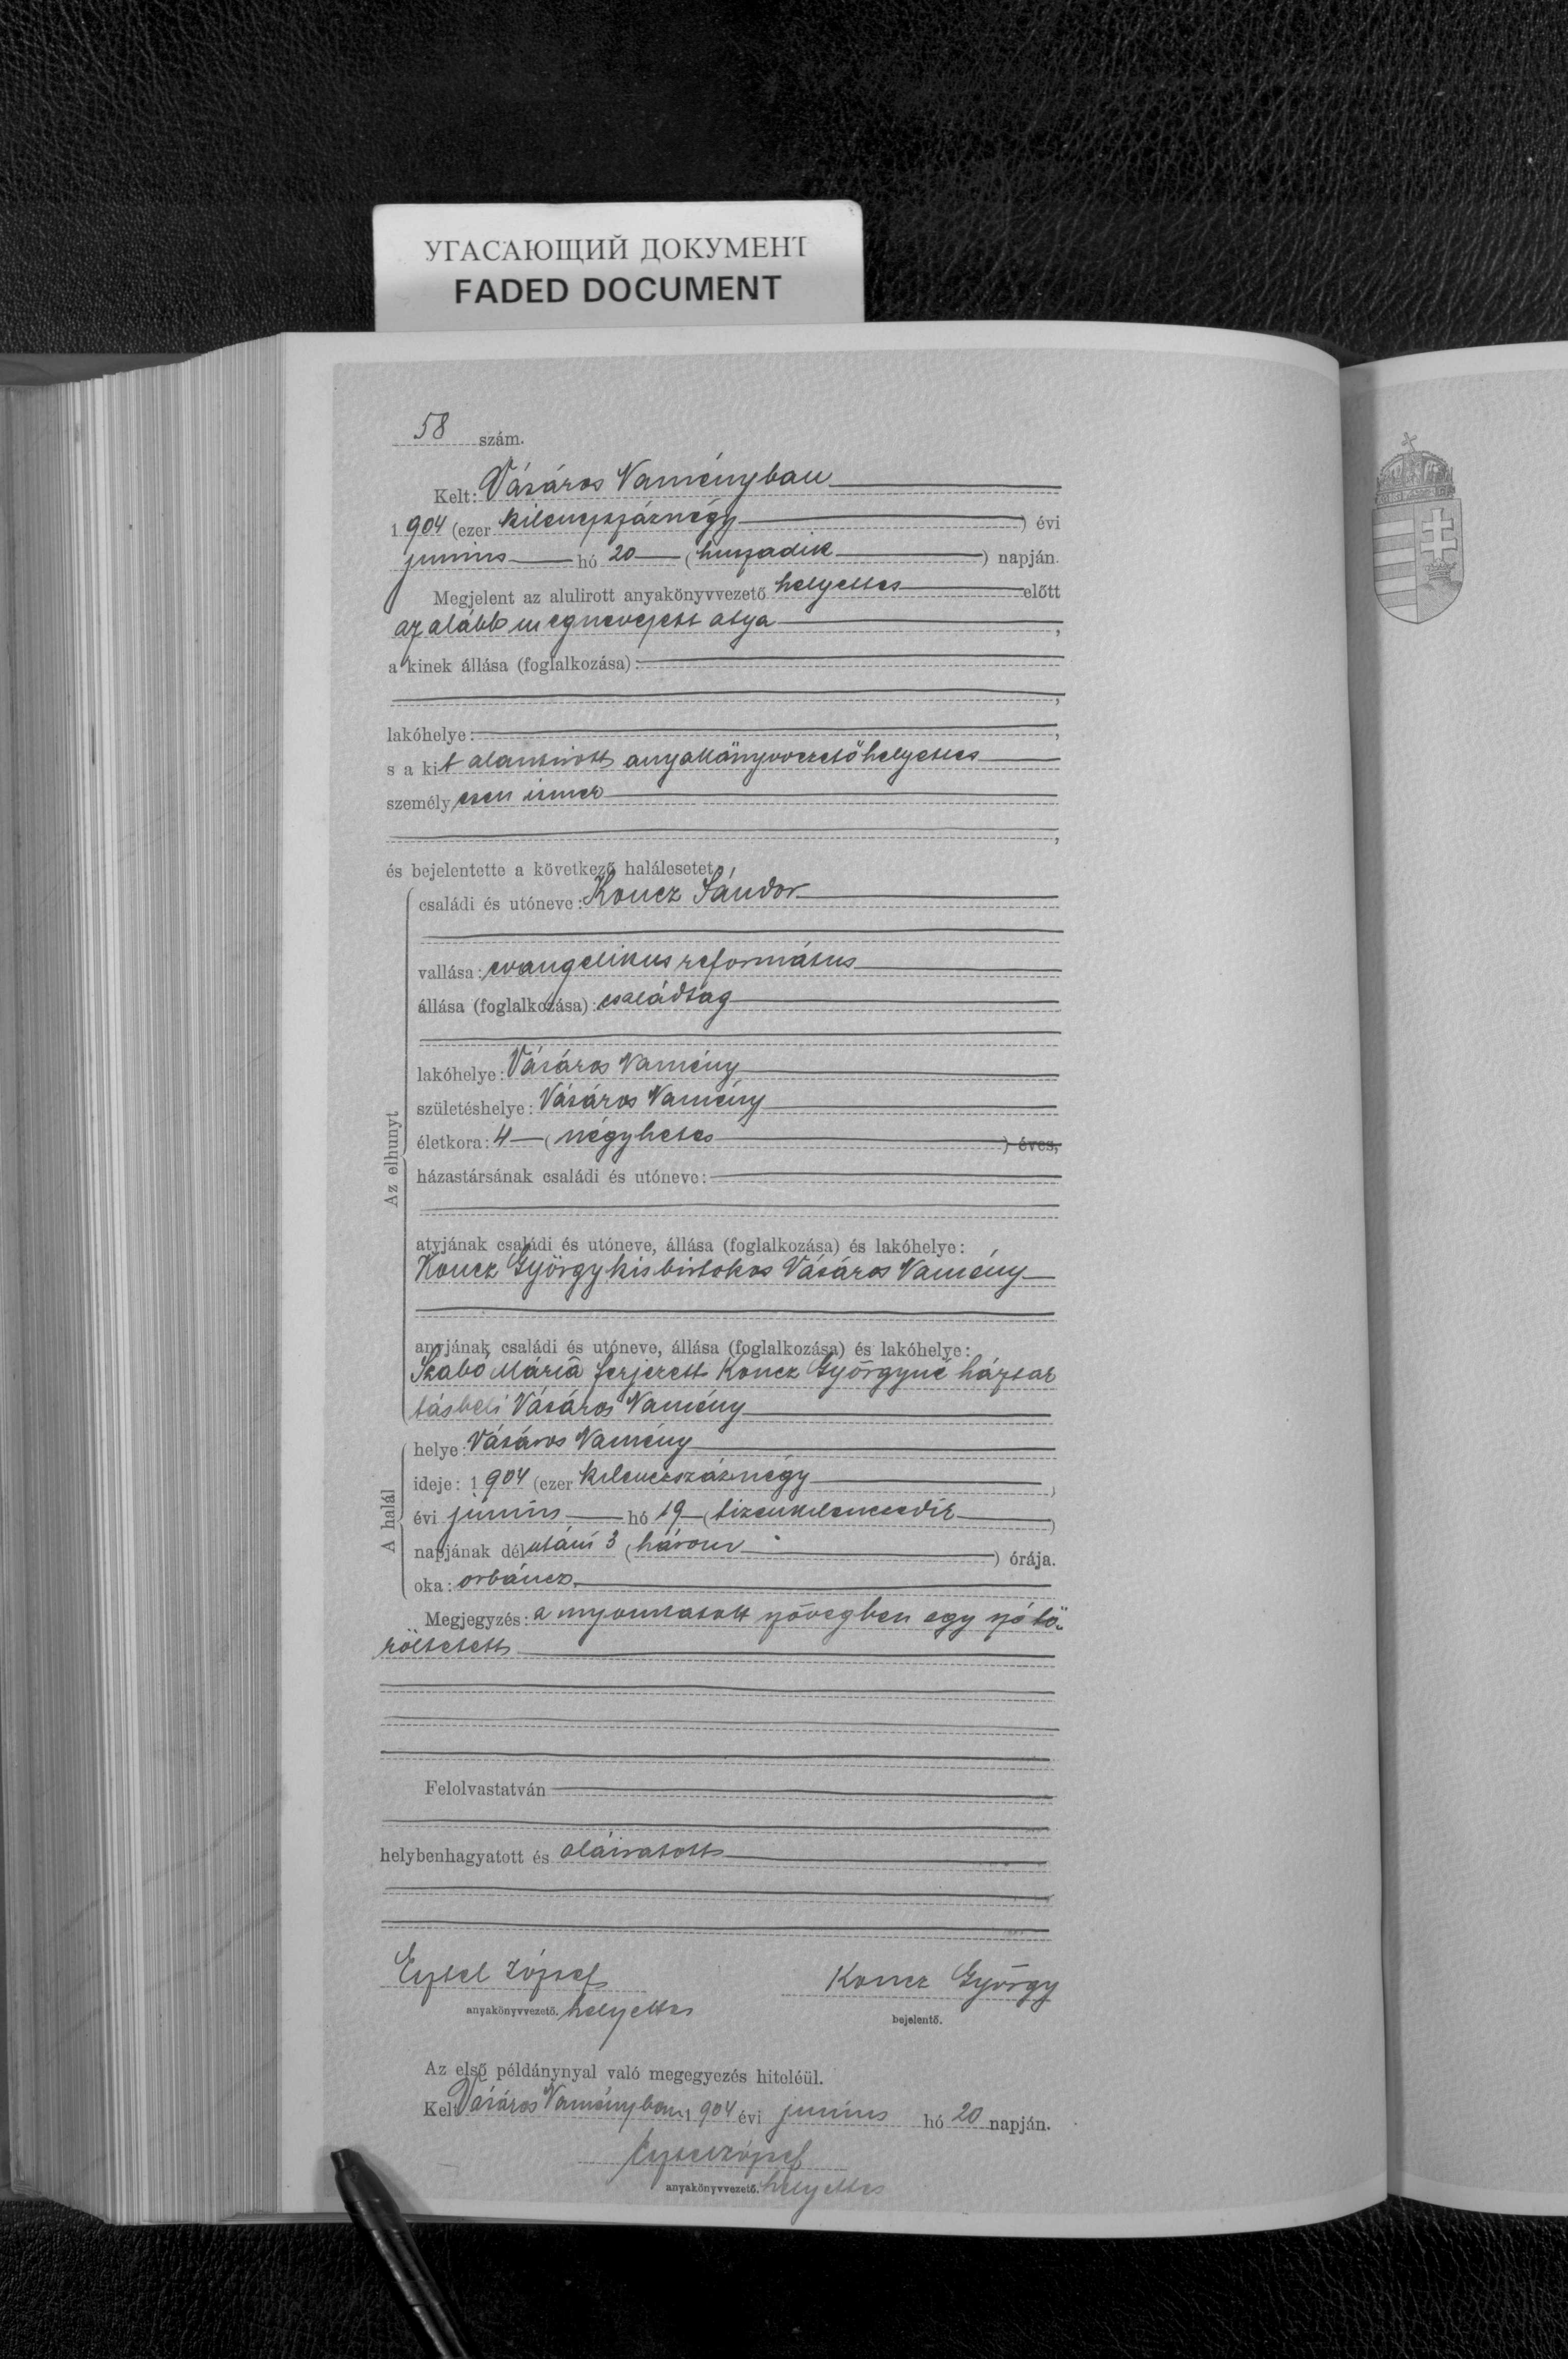 УГАСАЮЩИЙ ДОКУМЕНТ
FADED DOCUMENT
58 szám.
Kelt: Vásáros Naményban
1904 (ezer kilenczszáznégy) évi
junius hó 20 (huszadik) napján.
Megjelent az alulirott anyakönyvvezető helyettes előtt
az alább megnevezett atya,
a kinek állása (foglalkozása):
,
lakóhelye: ,
s a kit alantirott anyakönyvvezetőhelyettes
személyesen ismer
,
és bejelentette a következő halálesetet:
Az elhunyt
családi és utóneve: Koncz Sándor
vallása: evangelikus református
állása (foglalkozása): családtag
lakóhelye: Vásáros Namény
születéshelye: Vásáros Namény
életkora: 4 (négyhetes) éves,
házastársának családi és utóneve:
atyjának családi és utóneve, állása (foglalkozása) és lakóhelye:
Koncz György kisbirtokos Vásáros Namény
anyjának családi és utóneve, állása (foglalkozása) és lakóhelye:
Szabó Mária ferjezett Koncz Györgyné háztar
tásbeli Vásáros Namény
A halál
helye: Vásáros Namény
ideje: 1904 (ezer kilenczszáznégy)
évi junius hó 19 (tizenkilenczedik)
napjának délutáni 3 (három) órája.
oka: orbáncz
Megjegyzés: a nyomtatott szövegben egy szó tö-
röltetett
Felolvastatván
helybenhagyatott és aláiratott
Eysel József Koncz György
anyakönyvvezető. helyettes bejelentő.
Az első példánynyal való megegyezés hiteléül.
Kelt Vásáros Naményban, 1904 évi junius hó 20 napján.
Eysel József
anyakönyvvezető. helyettes